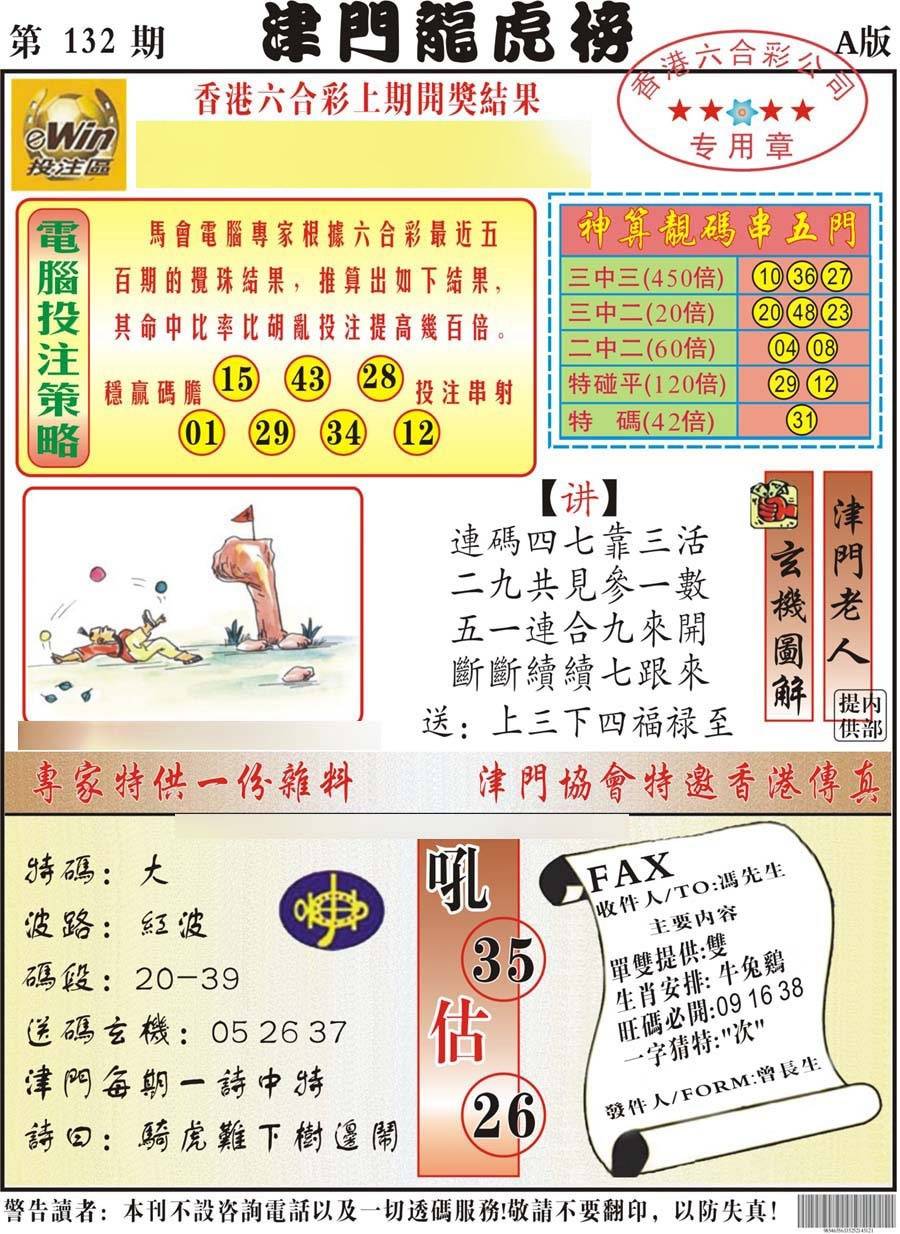 第 132 期
津門龍虎榜
A版
eWin
投注區
香港六合彩上期開獎結果
香港六合彩公司
专用章
電腦投注策略
馬會電腦專家根據六合彩最近五
百期的攪珠結果，推算出如下結果，
其命中比率比胡亂投注提高幾百倍。
穩贏碼膽 15 43 28 投注串射
01 29 34 12
神算靚碼串五門
三中三(450倍) 10 36 27
三中二(20倍) 20 48 23
二中二(60倍) 04 08
特碰平(120倍) 29 12
特 碼(42倍) 31
【讲】
連碼四七靠三活
二九共見參一數
五一連合九來開
斷斷續續七跟來
送：上三下四福禄至
玄機圖解
津門老人
提供
内部
專家特供一份雜料
津門協會特邀香港傳真
特碼：大
波路：紅波
碼段：20-39
送碼玄機：05 26 37
津門每期一詩中特
詩曰：騎虎難下樹邊鬧
吼
35
估
26
FAX
收件人/TO:馮先生
主要内容
單雙提供:雙
生肖安排: 牛兔鷄
旺碼必開:09 16 38
一字猜特:"次"
發件人/FORM:曾長生
警告讀者：本刊不設咨詢電話以及一切透碼服務!敬請不要翻印，以防失真!